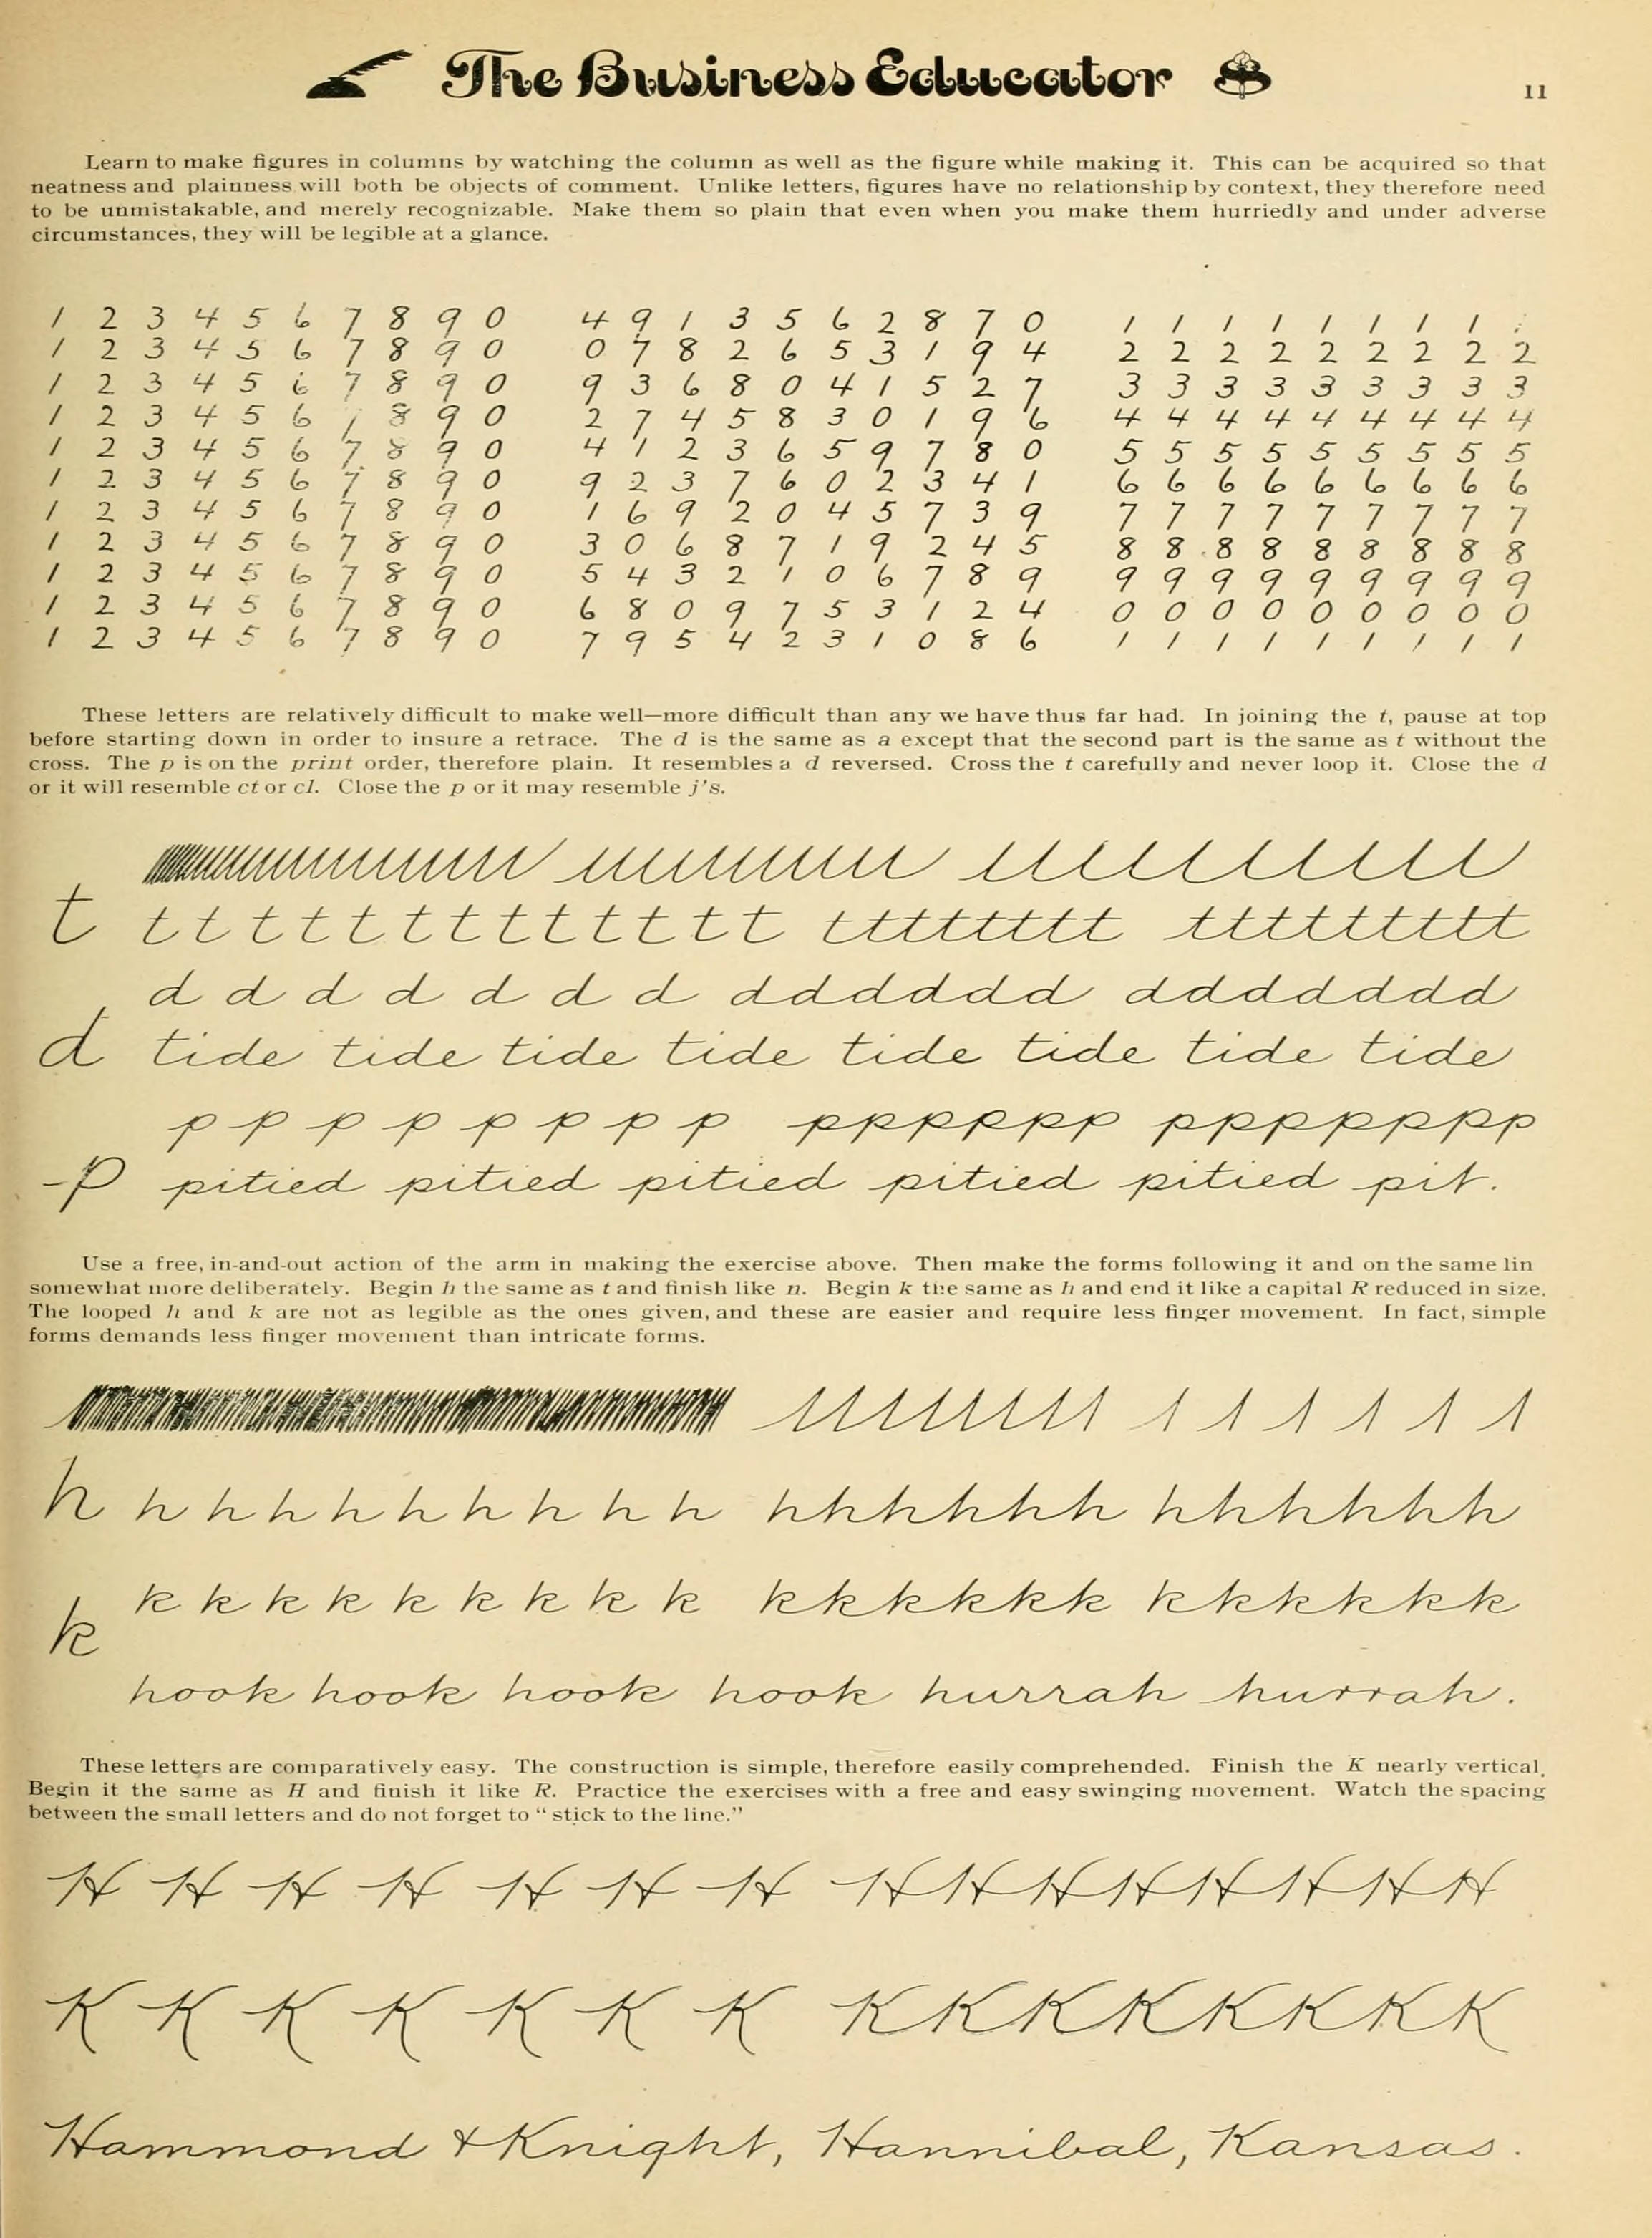 The Business Educator
11
Learn to make figures in columns by watching the column as well as the figure while making it. This can be acquired so that
neatness and plainness will both be objects of comment. Unlike letters, figures have no relationship by context, they therefore need
to be unmistakable, and merely recognizable. Make them so plain that even when you make them hurriedly and under adverse
circumstances, they will be legible at a glance.
1 2 3 4 5 6 7 8 9 0 4 9 1 3 5 6 2 8 7 0 1 1 1 1 1 1 1 1
1 2 3 4 5 6 7 8 9 0 0 7 8 2 6 5 3 1 9 4 2 2 2 2 2 2 2 2 2
1 2 3 4 5 6 7 8 9 0 9 3 6 8 0 4 1 5 2 7 3 3 3 3 3 3 3 3 3
1 2 3 4 5 6 7 8 9 0 2 7 4 5 8 3 0 1 9 6 4 4 4 4 4 4 4 4 4
1 2 3 4 5 6 7 8 9 0 4 1 2 3 6 5 9 7 8 0 5 5 5 5 5 5 5 5 5
1 2 3 4 5 6 7 8 9 0 9 2 3 7 6 0 2 3 4 1 6 6 6 6 6 6 6 6 6
1 2 3 4 5 6 7 8 9 0 1 6 9 2 0 4 5 7 3 9 7 7 7 7 7 7 7 7 7
1 2 3 4 5 6 7 8 9 0 3 0 6 8 7 1 9 2 4 5 8 8 8 8 8 8 8 8 8
1 2 3 4 5 6 7 8 9 0 5 4 3 2 1 0 6 7 8 9 9 9 9 9 9 9 9 9 9
1 2 3 4 5 6 7 8 9 0 6 8 0 9 7 5 3 1 2 4 0 0 0 0 0 0 0 0 0
1 2 3 4 5 6 7 8 9 0 7 9 5 4 2 3 1 0 8 6 1 1 1 1 1 1 1 1 1
These letters are relatively difficult to make well—more difficult than any we have thus far had. In joining the t, pause at top
before starting down in order to insure a retrace. The d is the same as a except that the second part is the same as t without the
cross. The p is on the print order, therefore plain. It resembles a d reversed. Cross the t carefully and never loop it. Close the d
or it will resemble ct or cl. Close the p or it may resemble j's.
t t t t t t t t t t t t t t tttttttt ttttttttt
d d d d d d d dddddd ddddddd
d tide tide tide tide tide tide tide tide
p p p p p p p p pppppp ppppppp
p pitied pitied pitied pitied pitied pit.
Use a free, in-and-out action of the arm in making the exercise above. Then make the forms following it and on the same lin
somewhat more deliberately. Begin h the same as t and finish like n. Begin k the same as h and end it like a capital R reduced in size.
The looped h and k are not as legible as the ones given, and these are easier and require less finger movement. In fact, simple
forms demands less finger movement than intricate forms.
h h h h h h h h h h hhhhhh hhhhhh
k k k k k k k k k kkkkkk kkkkkk
k
hook hook hook hook hurrah hurrah.
These letters are comparatively easy. The construction is simple, therefore easily comprehended. Finish the K nearly vertical.
Begin it the same as H and finish it like R. Practice the exercises with a free and easy swinging movement. Watch the spacing
between the small letters and do not forget to "stick to the line."
H H H H H H H HHHHHHHH
K K K K K K K KKKKKKKK
Hammond & Knight, Hannibal, Kansas.